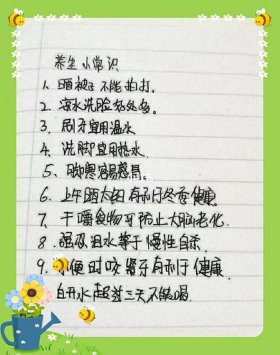 养生小常识
1、晒被子不能拍打.
2、凉水洗脸好处多.
3、刷牙宜用温水
4、洗脚宜用热水.
5、脚寒容易感冒.
6、上午晒太阳有利于冬季健康
7、干嚼食物可防止大脑老化.
8、强忍泪水等于慢性自杀.
9、小便时咬紧牙有利于健康
白开水超过三天不能喝